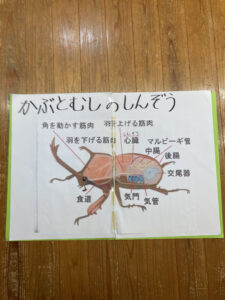 かぶとむしのしんぞう
角を動かす筋肉 羽を上げる筋肉
羽を下げる筋肉 心臓 マルピーギ管
中腸
後腸
交尾器
食道 気門 気管